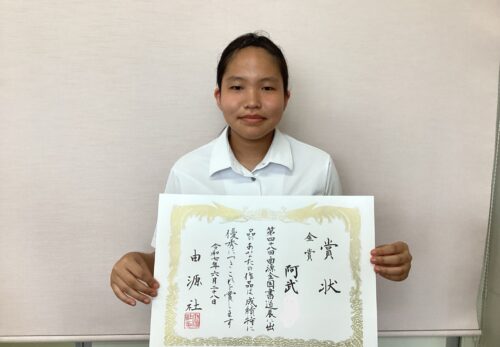 賞状
金賞
阿武
第四十八回由源全国書道展に出
品のあなたの作品は成績特に
優秀につきこれを賞します
令和七年六月二十八日
由源社